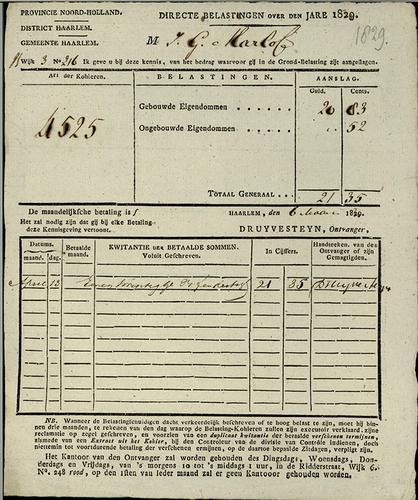 PROVINCIE NOORD-HOLLAND.
DISTRICT HAARLEM.
GEMEENTE HAARLEM.
DIRECTE BELASTINGEN OVER DEN JARE 1829.
1829.
M J. G.
Wijk 3 No. 216 Ik geve u bij deze kennis, van het bedrag waarvoor gij in de Grond-Belasting zijt aangeslagen.
Art der Kohieren.
BELASTINGEN.
AANSLAG.
Guld. Cents.
4525
Gebouwde Eigendommen . . . . . . 20 83
Ongebouwde Eigendommen . . . . . . 52
TOTAAL GENERAAL . . . 21 35
De maandelijksche betaling is f
HAARLEM, den 6 1829.
Het zal noodig zijn dat gij bij elke Betaling
deze Kennisgeving vertoont.
DRUYVESTEYN, Ontvanger,
Datums.
maand. dag.
Betaalde maand.
KWITANTIE DER BETAALDE SOMMEN.
Voluit Geschreven.
In Cijffers.
Handteeken. van den
Ontvanger of zijn
Gemagtigden.
April 13 21 35 Druyvesteyn
NB. Wanneer de Belastingschuldigen dacht verkeerdelijk beschreven of te hoog belast te zijn, moet hij binnen
drie maanden, te rekenen van den dag waarop de Belasting-Kohieren zullen zijn executoir verklaard, zijne
reclamatie op zegel geschreven, en voorzien van een duplicaat kwitantie der betaalde verschenen termijnen,
alsmede van een Extract uit het Kohier, bij den Controleur van de divisie van Contrôle indienen, doch
niettemin tot voortdurende betaling der verschenen termijnen, op de daartoe bepaalde Zitdagen, verpligt zijn.
Het Kantoor van den Ontvanger zal worden gehouden des Dingsdags, Woensdags, Donderdags
en Vrijdags, van 's morgens 10 tot 's middags 1 uur, in de Ridderstraat, Wijk 6.
No. 248 rood, op den 1sten van ieder maand zal er geen Kantoor gehouden worden.